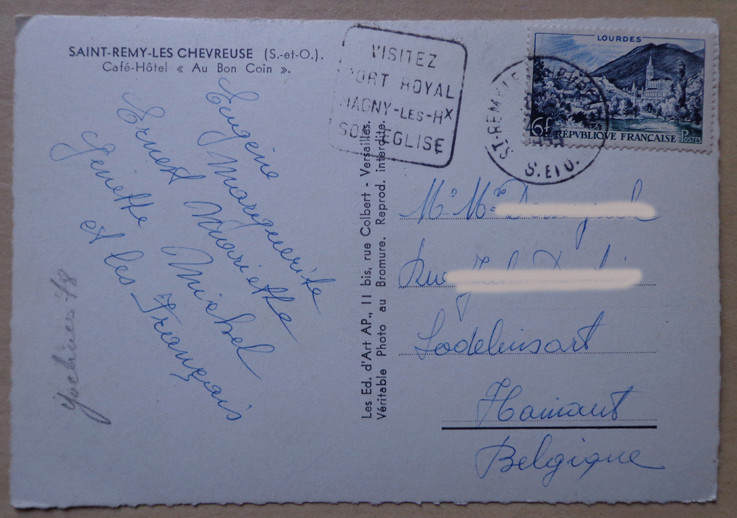 SAINT-REMY-LES CHEVREUSE (S.-et-O.).
Café-Hôtel « Au Bon Coin ».
Eugène Marguerite
Ernest Mariette
Ginette Michel
et les Français
VISITEZ
PORT ROYAL
MAGNY-LES-Hx
SON EGLISE
LOURDES
6f RÉPVBLIQVE FRANÇAISE
S. ET O.
Les Ed. d'Art AP., 11 bis, rue Colbert - Versailles.
Véritable Photo au Bromure. Reprod. interdite.
Mr Me
Rue
Lodelinsart
Hainaut
Belgique